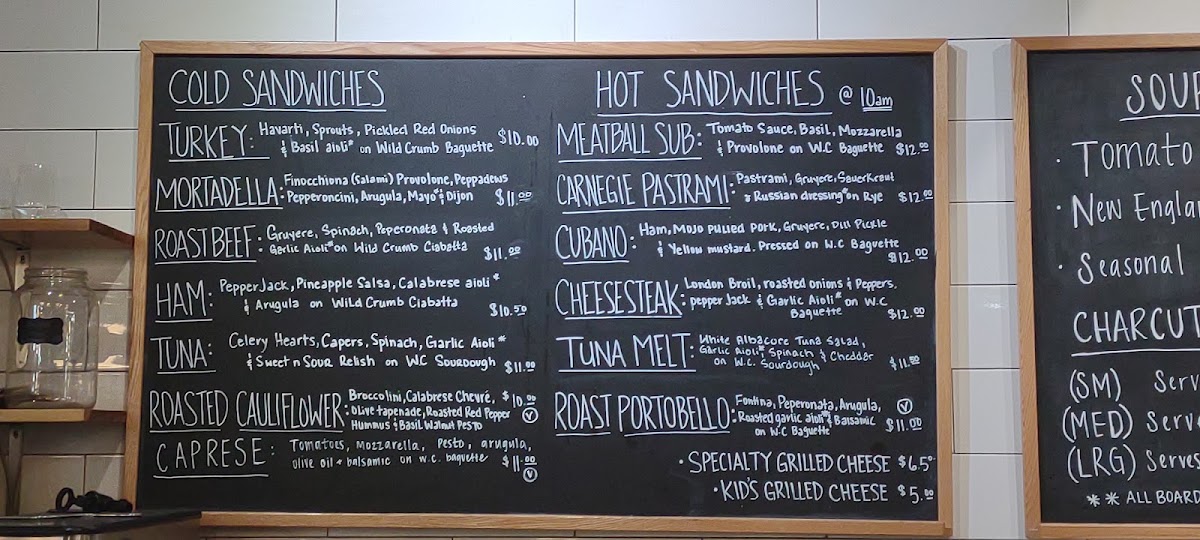 COLD SANDWICHES
TURKEY: Havarti, Sprouts, Pickled Red Onions
& Basil aioli* on Wild Crumb Baguette $10.00
MORTADELLA: Finocchiona (salami) Provolone, Peppadews
Pepperoncini, Arugula, Mayo* & Dijon $11.00
ROAST BEEF: Gruyere, Spinach, Peperonata & Roasted
Garlic Aioli* on Wild Crumb Ciabatta $11.00
HAM: Pepper Jack, Pineapple Salsa, Calabrese aioli*
& Arugula on Wild Crumb Ciabatta $10.50
TUNA: Celery Hearts, Capers, Spinach, Garlic Aioli*
& Sweet n Sour Relish on W.C Sourdough $11.00
ROASTED CAULIFLOWER: Broccolini, Calabrese Chevré, $10.00
Olive tapenade, Roasted Red Pepper V
Hummus & Basil Walnut Pesto
CAPRESE: Tomatoes, Mozzarella, Pesto, arugula,
olive oil + balsamic on w.c. baguette $11.00
V
HOT SANDWICHES @ 10am
MEATBALL SUB: Tomato Sauce, Basil, Mozzarella
& Provolone on W.C Baguette $12.00
CARNEGIE PASTRAMI: Pastrami, Gruyere, Sauerkraut
& Russian dressing* on Rye $12.00
CUBANO: Ham, Mojo Pulled Pork, Gruyere, Dill Pickle
& Yellow mustard. Pressed on W.C Baguette
$12.00
CHEESESTEAK: London Broil, roasted onions & Peppers,
pepper Jack & Garlic Aioli* on W.C
Baguette $12.00
TUNA MELT: White Albacore Tuna Salad,
Garlic Aioli* Spinach & Cheddar
on W.C. Sourdough $11.50
ROAST PORTOBELLO: Fontina, Peperonata, Arugula, V
Roasted garlic aioli* & Balsamic
on W.C Baguette $11.00
· SPECIALTY GRILLED CHEESE $6.50
· KID'S GRILLED CHEESE $5.00
SOUP
· Tomato
· New Englan
· Seasonal
CHARCUT
(SM) Serv
(MED) Serv
(LRG) Serves
** ALL BOARD